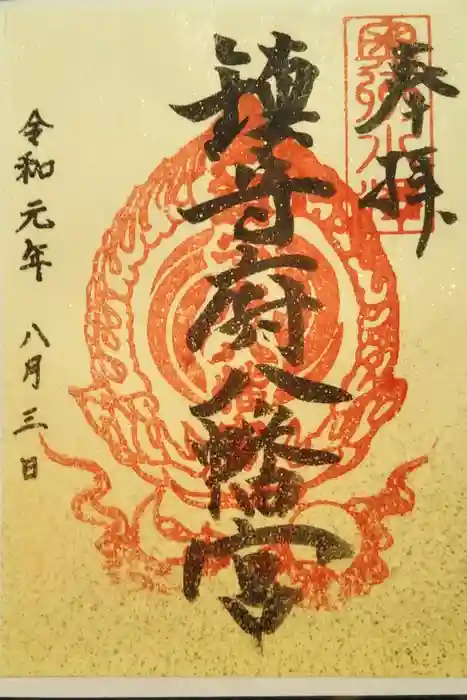 奉拝
鎮守府八幡宮
令和元年 八月三日